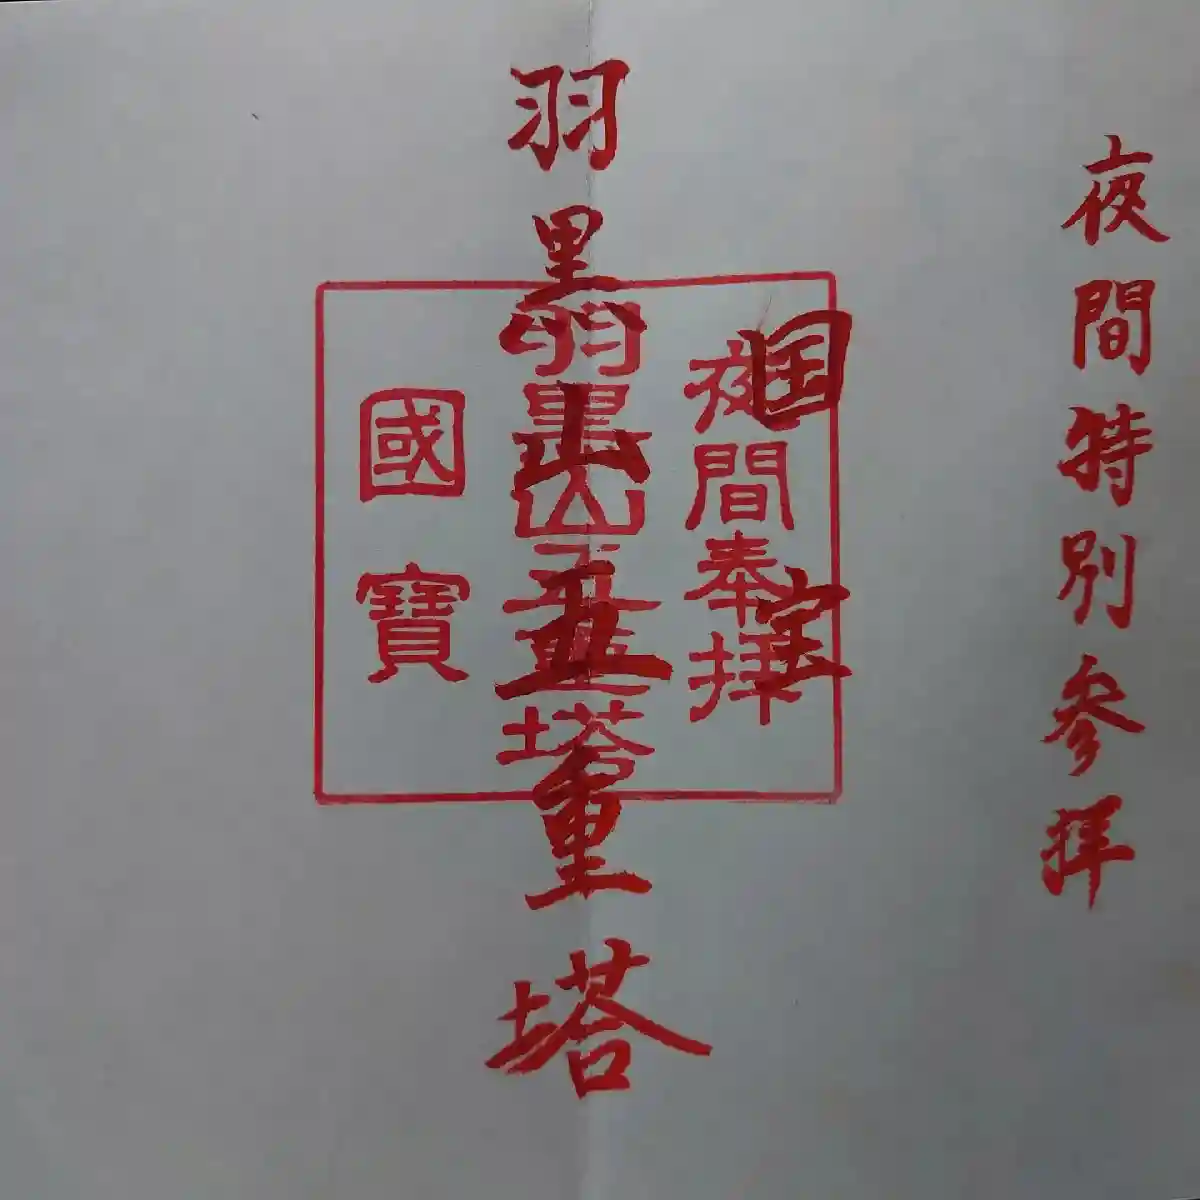 夜間特別参拝
国宝
羽黒山五重塔
夜間奉拝
羽黒山五重塔
國寶